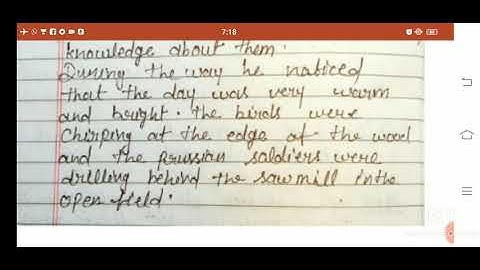 7:18
knowledge about them.
During the way he noticed
that the day was very warm
and bright. The birds were
chirping at the edge of the wood
and the prussian soldiers were
drilling behind the sawmill in the
open field.